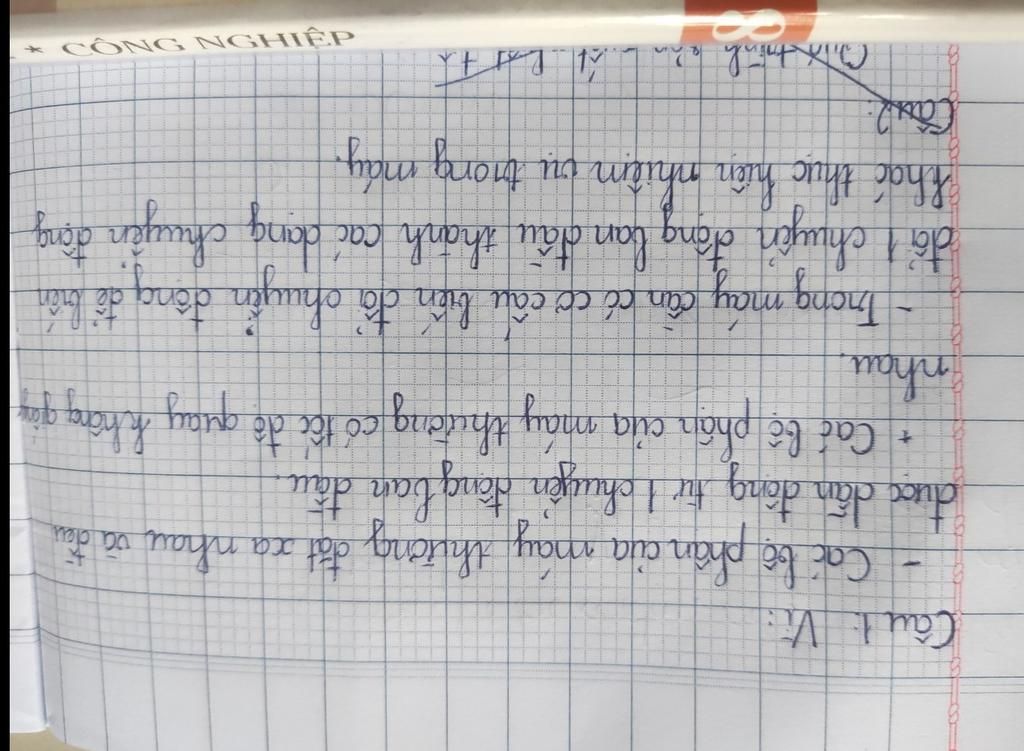 Câu 1: Vì:
- Các bộ phận của máy thường đặt xa nhau và đều
được dẫn động từ 1 chuyển động ban đầu.
+ Các bộ phận của máy thường có tốc độ quay không
nhau.
- Trong máy cần có cơ cấu biến đổi chuyển động để biến
đổi 1 chuyển động ban đầu thành các dạng chuyển động
khác thực hiện nhiệm vụ trong máy.
Câu 2:
trình
* CÔNG NGHIỆP
8